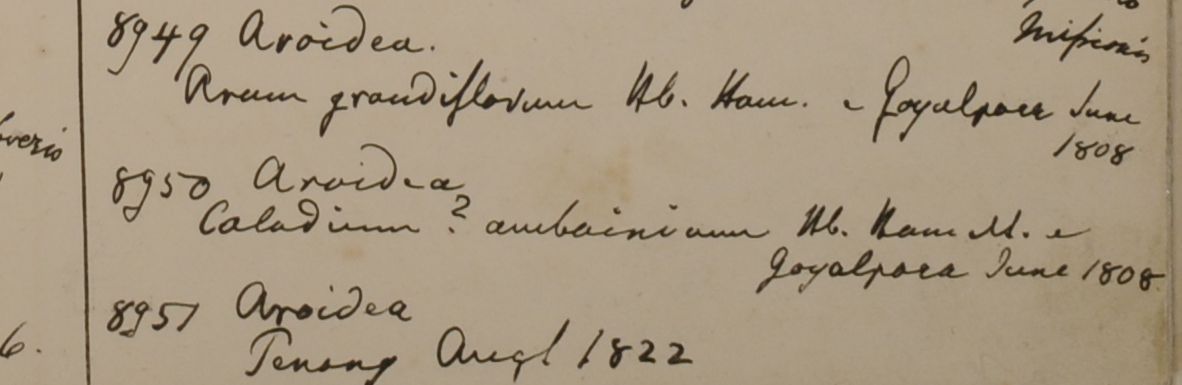 Missionis
8949 Aroidea.
Arum grandiflorum Hb. Ham. e Goyalpara June
1808
8950 Aroidea
Caladium ? amboinianum Hb. Ham. e
Goyalpara June 1808
8951 Aroidea
Penang Augt 1822
6.